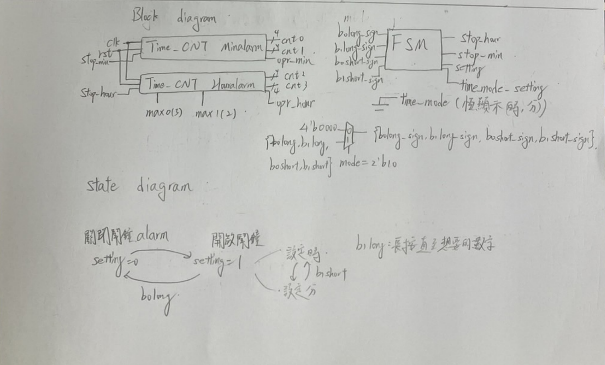 Block diagram
clk
rst
stop_min
Time_CNT Minalarm
4
cnt0
3
cnt1
upr_min
stop_hour
Time_CNT Houralarm
cnt2
cnt3
upr_hour
max0(3)
max1(2)
b0long_sign
b1long_sign
b0short_sign
b1short_sign
FSM
stop_hour
stop_min
setting
time_mode_setting
time_mode (恆顯示時,分)
4'b0000
{b0long, b1long,
b0short, b1short}
mode=2'b10
{b0long_sign, b1long_sign, b0short_sign, b1short_sign}
state diagram :
關閉鬧鐘 alarm
setting=0
開啟鬧鐘
setting=1
b0long
設定時
b1short
設定分
b1long:長按直到想要的數字